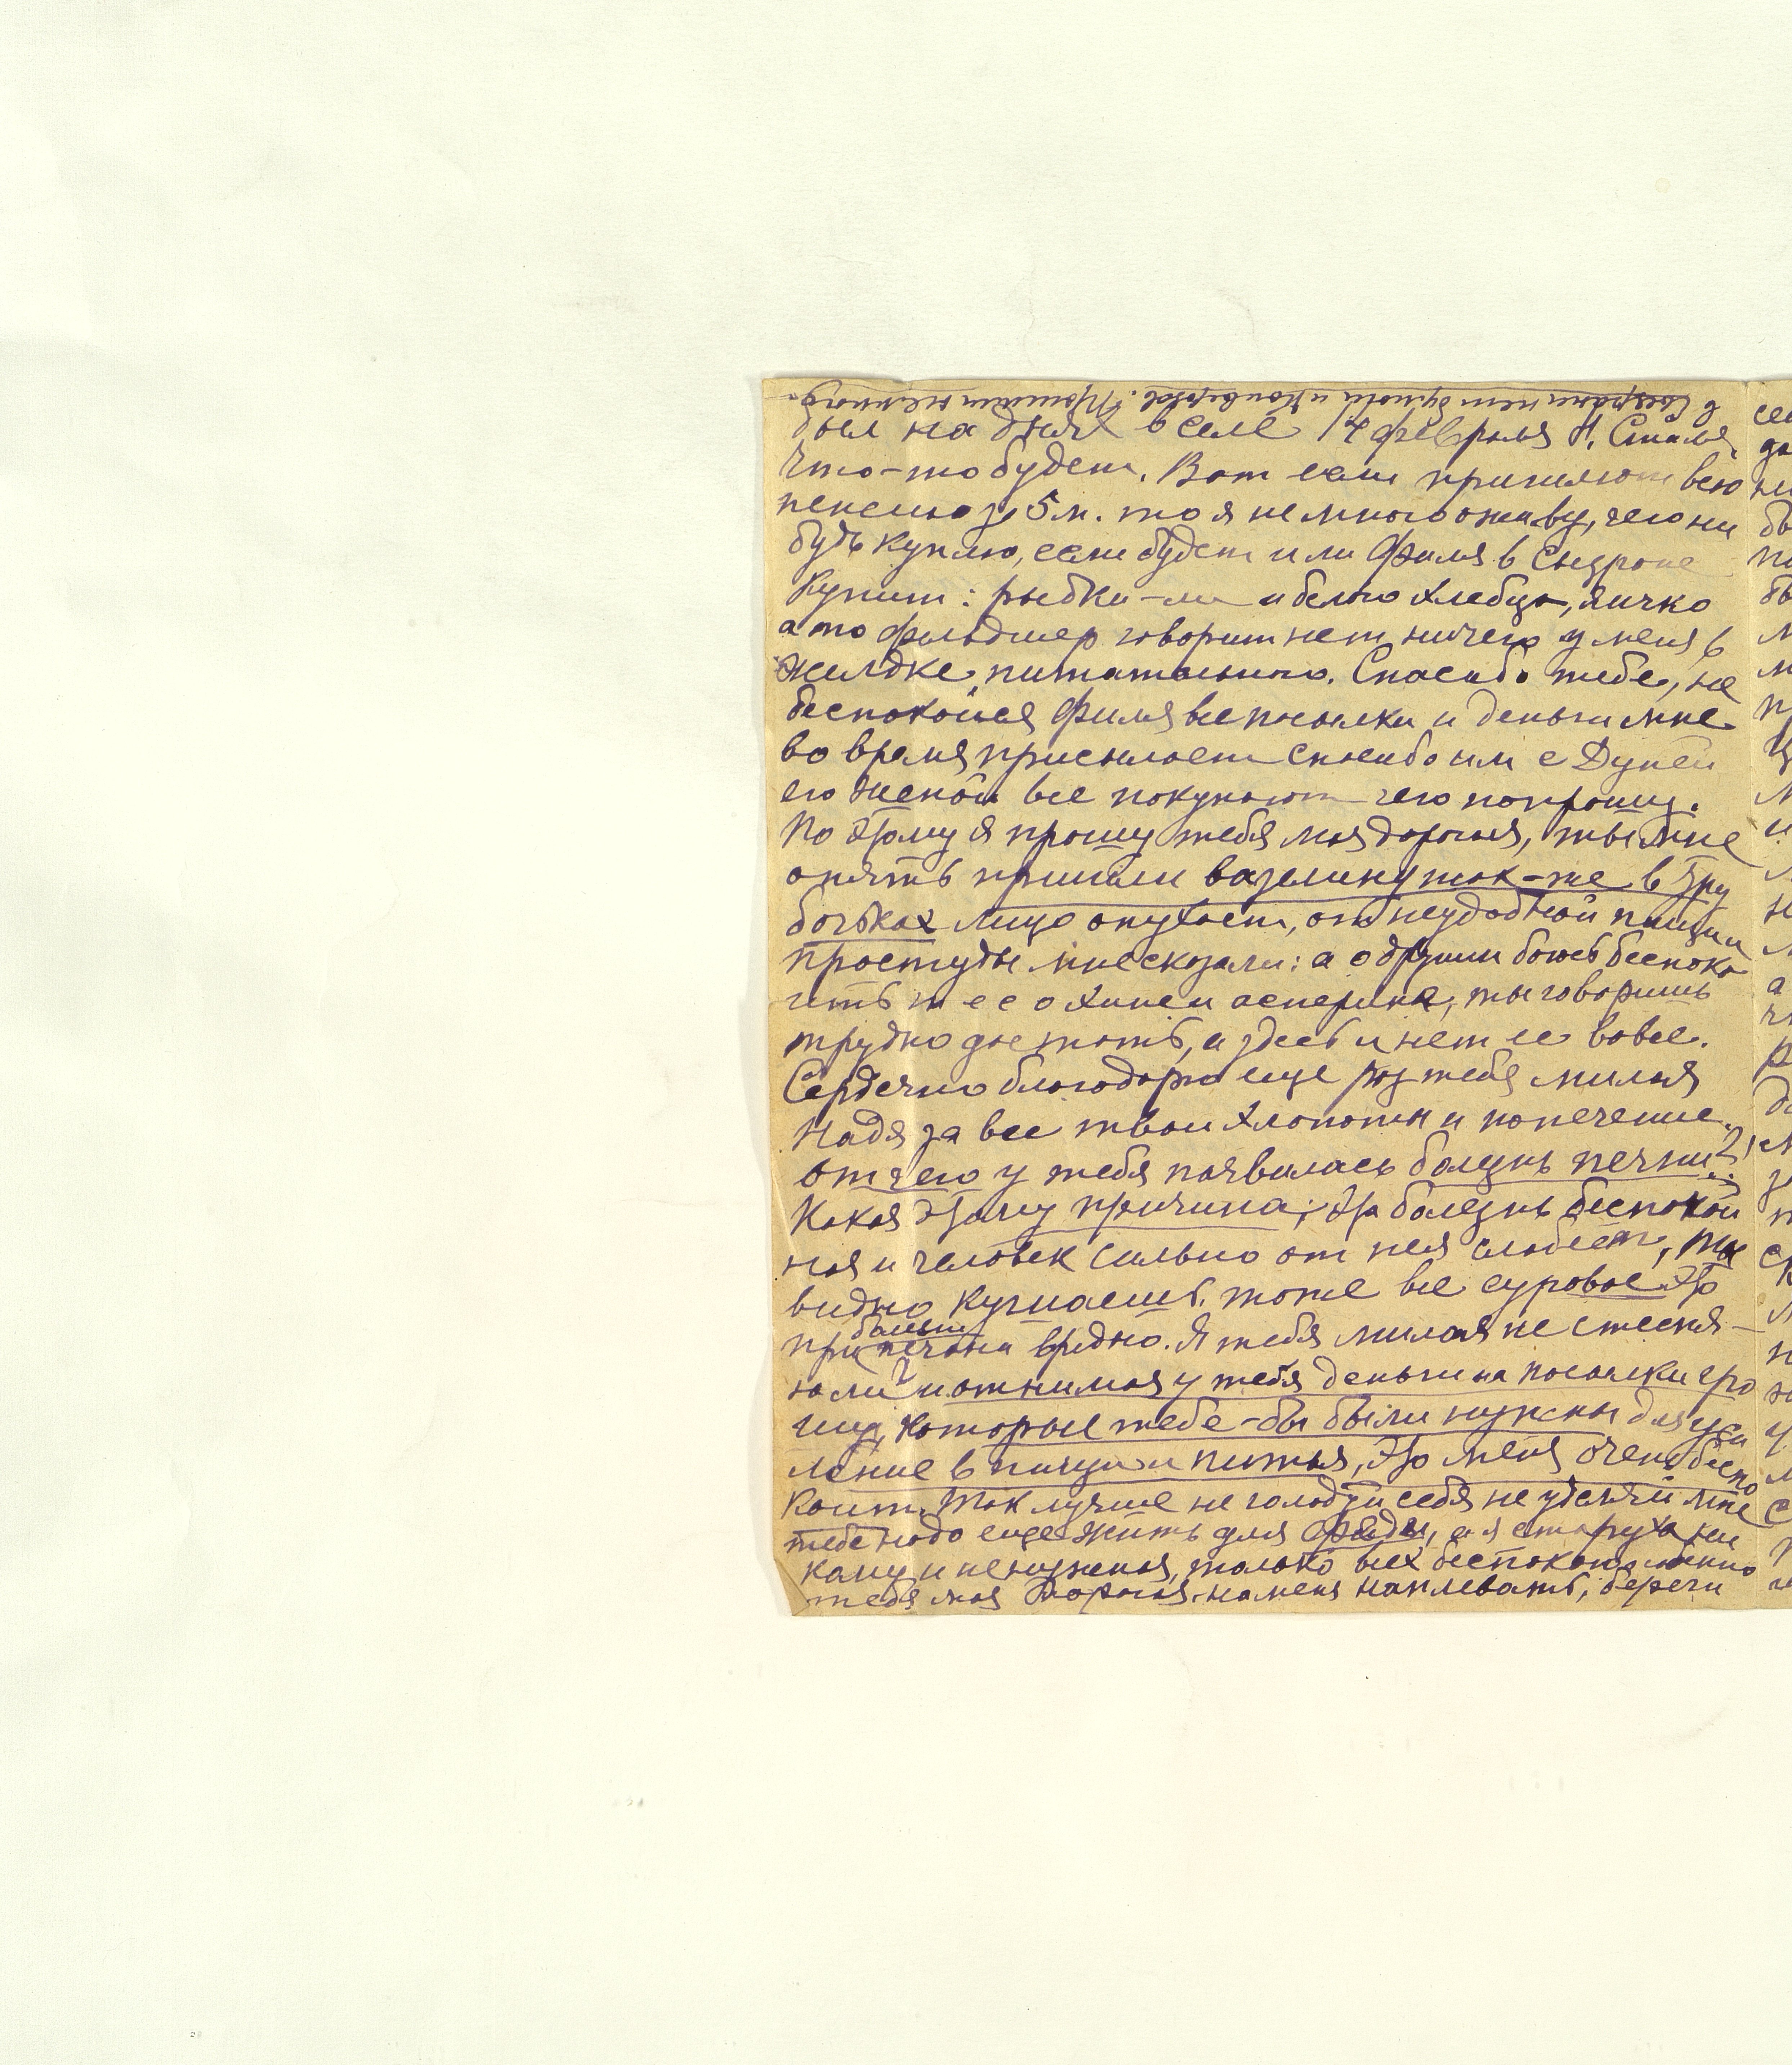 в Сызрани нет бумаги и конвертов. Пришли немного.
был на днях в селе 14 февраля
Что-то будет. Вот если пришлют всю
пенсию за 5 м. то я немного оживу, чего ни
будь куплю, если будет или Филя в Сызране
Купит: рыбки-ли и белого хлебца, яичко
а то фельдшер говорит нет ничего у меня в
желдке, питательного. Спасибо тебе, не
беспокойся Филя все посылки и деньги мне
во время присылает спасибо им с Дуней
его женой все покупают чего попрошу.
По этому я прошу тебя моя дорогая, ты мне
опять пришли вазелину так-же в тру
бочьках лицо опухает, от неудобной пищи и
простуды мне сказали: а о другим боюсь беспоко
ить тебе о хине и асперине, ты говоришь
трудно достать, а здесь и нет ее вовсе.
Сердечно благодарю еще раз тебя милая
Надя за все твои хлопоты и попечение.
отчего у тебя появилась болезнь печни?
Какая этому причина; эта болезнь беспокой
ная и человек сильно от нея слабеет, ты
видно кушаешь тоже все суровое это
при больны печони вредно. Я тебя милая не стесня-
ю ли? и отнимая у тебя деньги на посылки гро
ши, которые тебе-бы были нужны для уси
ление в пищи и питья, это меня очень беспо
коит. Так лучше не голодуй себя не уделяй мне
тебе надо еще жить для Феди, а я старуха ни
кому и не нужная, только всех беспокою
тебя моя дорогая. на меня наплевать, береги